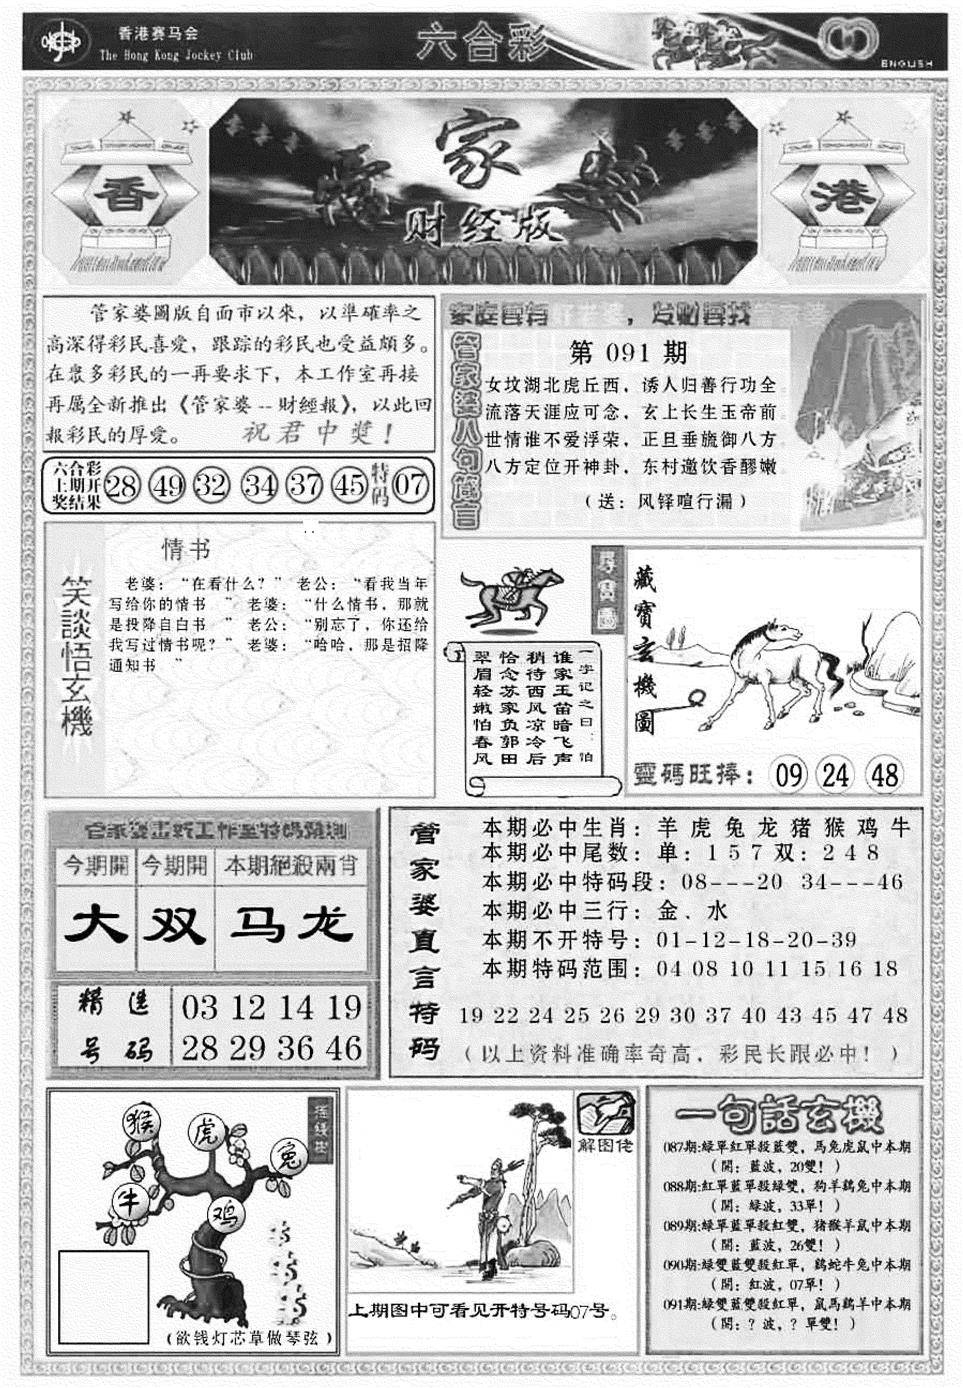 香港赛马会
The Hong Kong Jockey Club
六合彩
ENGLISH
香
管家婆
港
财经版
管家婆圖版自面市以來，以準確率之
高深得彩民喜愛，跟踪的彩民也受益頗多。
在眾多彩民的一再要求下，本工作室再接
再厲全新推出《管家婆--財經報》，以此回
報彩民的厚愛。 祝君中獎！
六合彩
上期开
奖结果
28 49 32 34 37 45 特码 07
管家婆八句箴言
第 091 期
女坟湖北虎丘西，诱人归善行功全
流落天涯应可念，玄上长生玉帝前。
世情谁不爱浮荣，正旦垂旒御八方
八方定位开神卦，东村邀饮香醪嫩
（送：风铎喧行漏）
笑談悟玄機
情书
老婆：“在看什么？” 老公：“看我当年
写给你的情书 ” 老婆：“什么情书，那就
是投降自白书 ” 老公：“别忘了，你还给
我写过情书呢？” 老婆：“哈哈，那是招降
通知书 ”
尋寶圖
一字记之曰：怕
谁家玉笛暗飞声
稍待西风凉冷后
恰念苏家负郭田
翠眉轻嫩怕春风
藏寶玄機圖
靈碼旺捧：09 24 48
今期開 今期開 本期絕殺兩肖
大 双 马龙
精选
号码
03 12 14 19
28 29 36 46
管家婆直言特码
本期必中生肖：羊虎兔龙猪猴鸡牛
本期必中尾数：单：157双：248
本期必中特码段：08---20 34---46
本期必中三行：金、水
本期不开特号：01-12-18-20-39
本期特码范围：04 08 10 11 15 16 18
19 22 24 25 26 29 30 37 40 43 45 47 48
（以上资料准确率奇高，彩民长跟必中！）
猴
虎
兔
牛
鸡
（欲钱灯芯草做琴弦）
解图佬
上期图中可看见开特号码07号。
一句話玄機
087期:綠單紅單殺藍雙，馬兔虎鼠中本期
（開：藍波，20雙！）
088期:紅單藍單殺綠雙，狗羊鷄兔中本期
（開：綠波，33單！）
089期:綠單藍單殺紅雙，猪猴羊鼠中本期
（開：藍波，26雙！）
090期:綠雙藍雙殺紅單，鷄蛇牛兔中本期
（開：紅波，07單！）
091期:綠雙藍雙殺紅單，鼠馬鷄羊中本期
（開：？波，？單雙！）